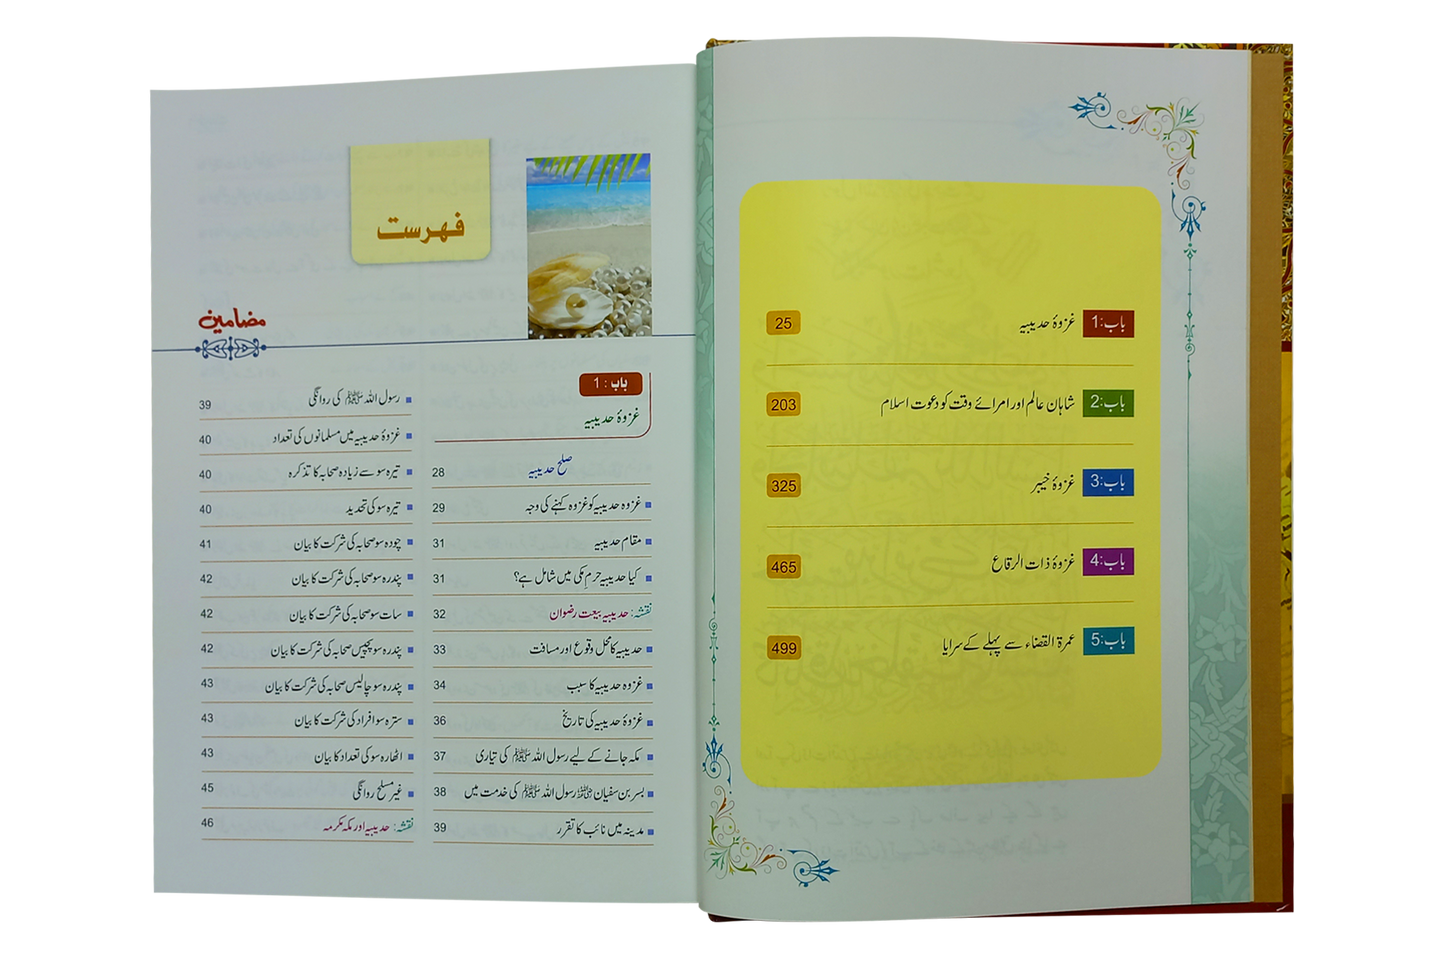 باب:1 غزوۂ حدیبیہ 25
باب:2 شاہان عالم اور امرائے وقت کو دعوت اسلام 203
باب:3 غزوۂ خیبر 325
باب:4 غزوۂ ذات الرقاع 465
باب:5 عمرۃ القضاء سے پہلے کے سرایا 499
فہرست
مضامین
باب : 1
غزوۂ حدیبیہ
صلح حدیبیہ 28
غزوہ حدیبیہ کو غزوہ کہنے کی وجہ 29
مقام حدیبیہ 31
کیا حدیبیہ حرم مکی میں شامل ہے؟ 31
نقشہ: حدیبیہ بیعت رضوان 32
حدیبیہ کا محل وقوع اور مسافت 33
غزوہ حدیبیہ کا سبب 34
غزوۂ حدیبیہ کی تاریخ 36
مکہ جانے کے لیے رسول اللہ ﷺ کی تیاری 37
بسر بن سفیان رضی اللہ عنہ رسول اللہ ﷺ کی خدمت میں 38
مدینہ میں نائب کا تقرر 39
رسول اللہ ﷺ کی روانگی 39
غزوۂ حدیبیہ میں مسلمانوں کی تعداد 40
تیرہ سو سے زیادہ صحابہ کا تذکرہ 40
تیرہ سو کی تحدید 40
چودہ سو صحابہ کی شرکت کا بیان 41
پندرہ سو صحابہ کی شرکت کا بیان 42
سات سو صحابہ کی شرکت کا بیان 42
پندرہ سو پچیس صحابہ کی شرکت کا بیان 42
پندرہ سو چالیس صحابہ کی شرکت کا بیان 43
سترہ سو افراد کی شرکت کا بیان 43
اٹھارہ سو کی تعداد کا بیان 43
غیر مسلح روانگی 45
نقشہ: حدیبیہ اور مکہ مکرمہ 46